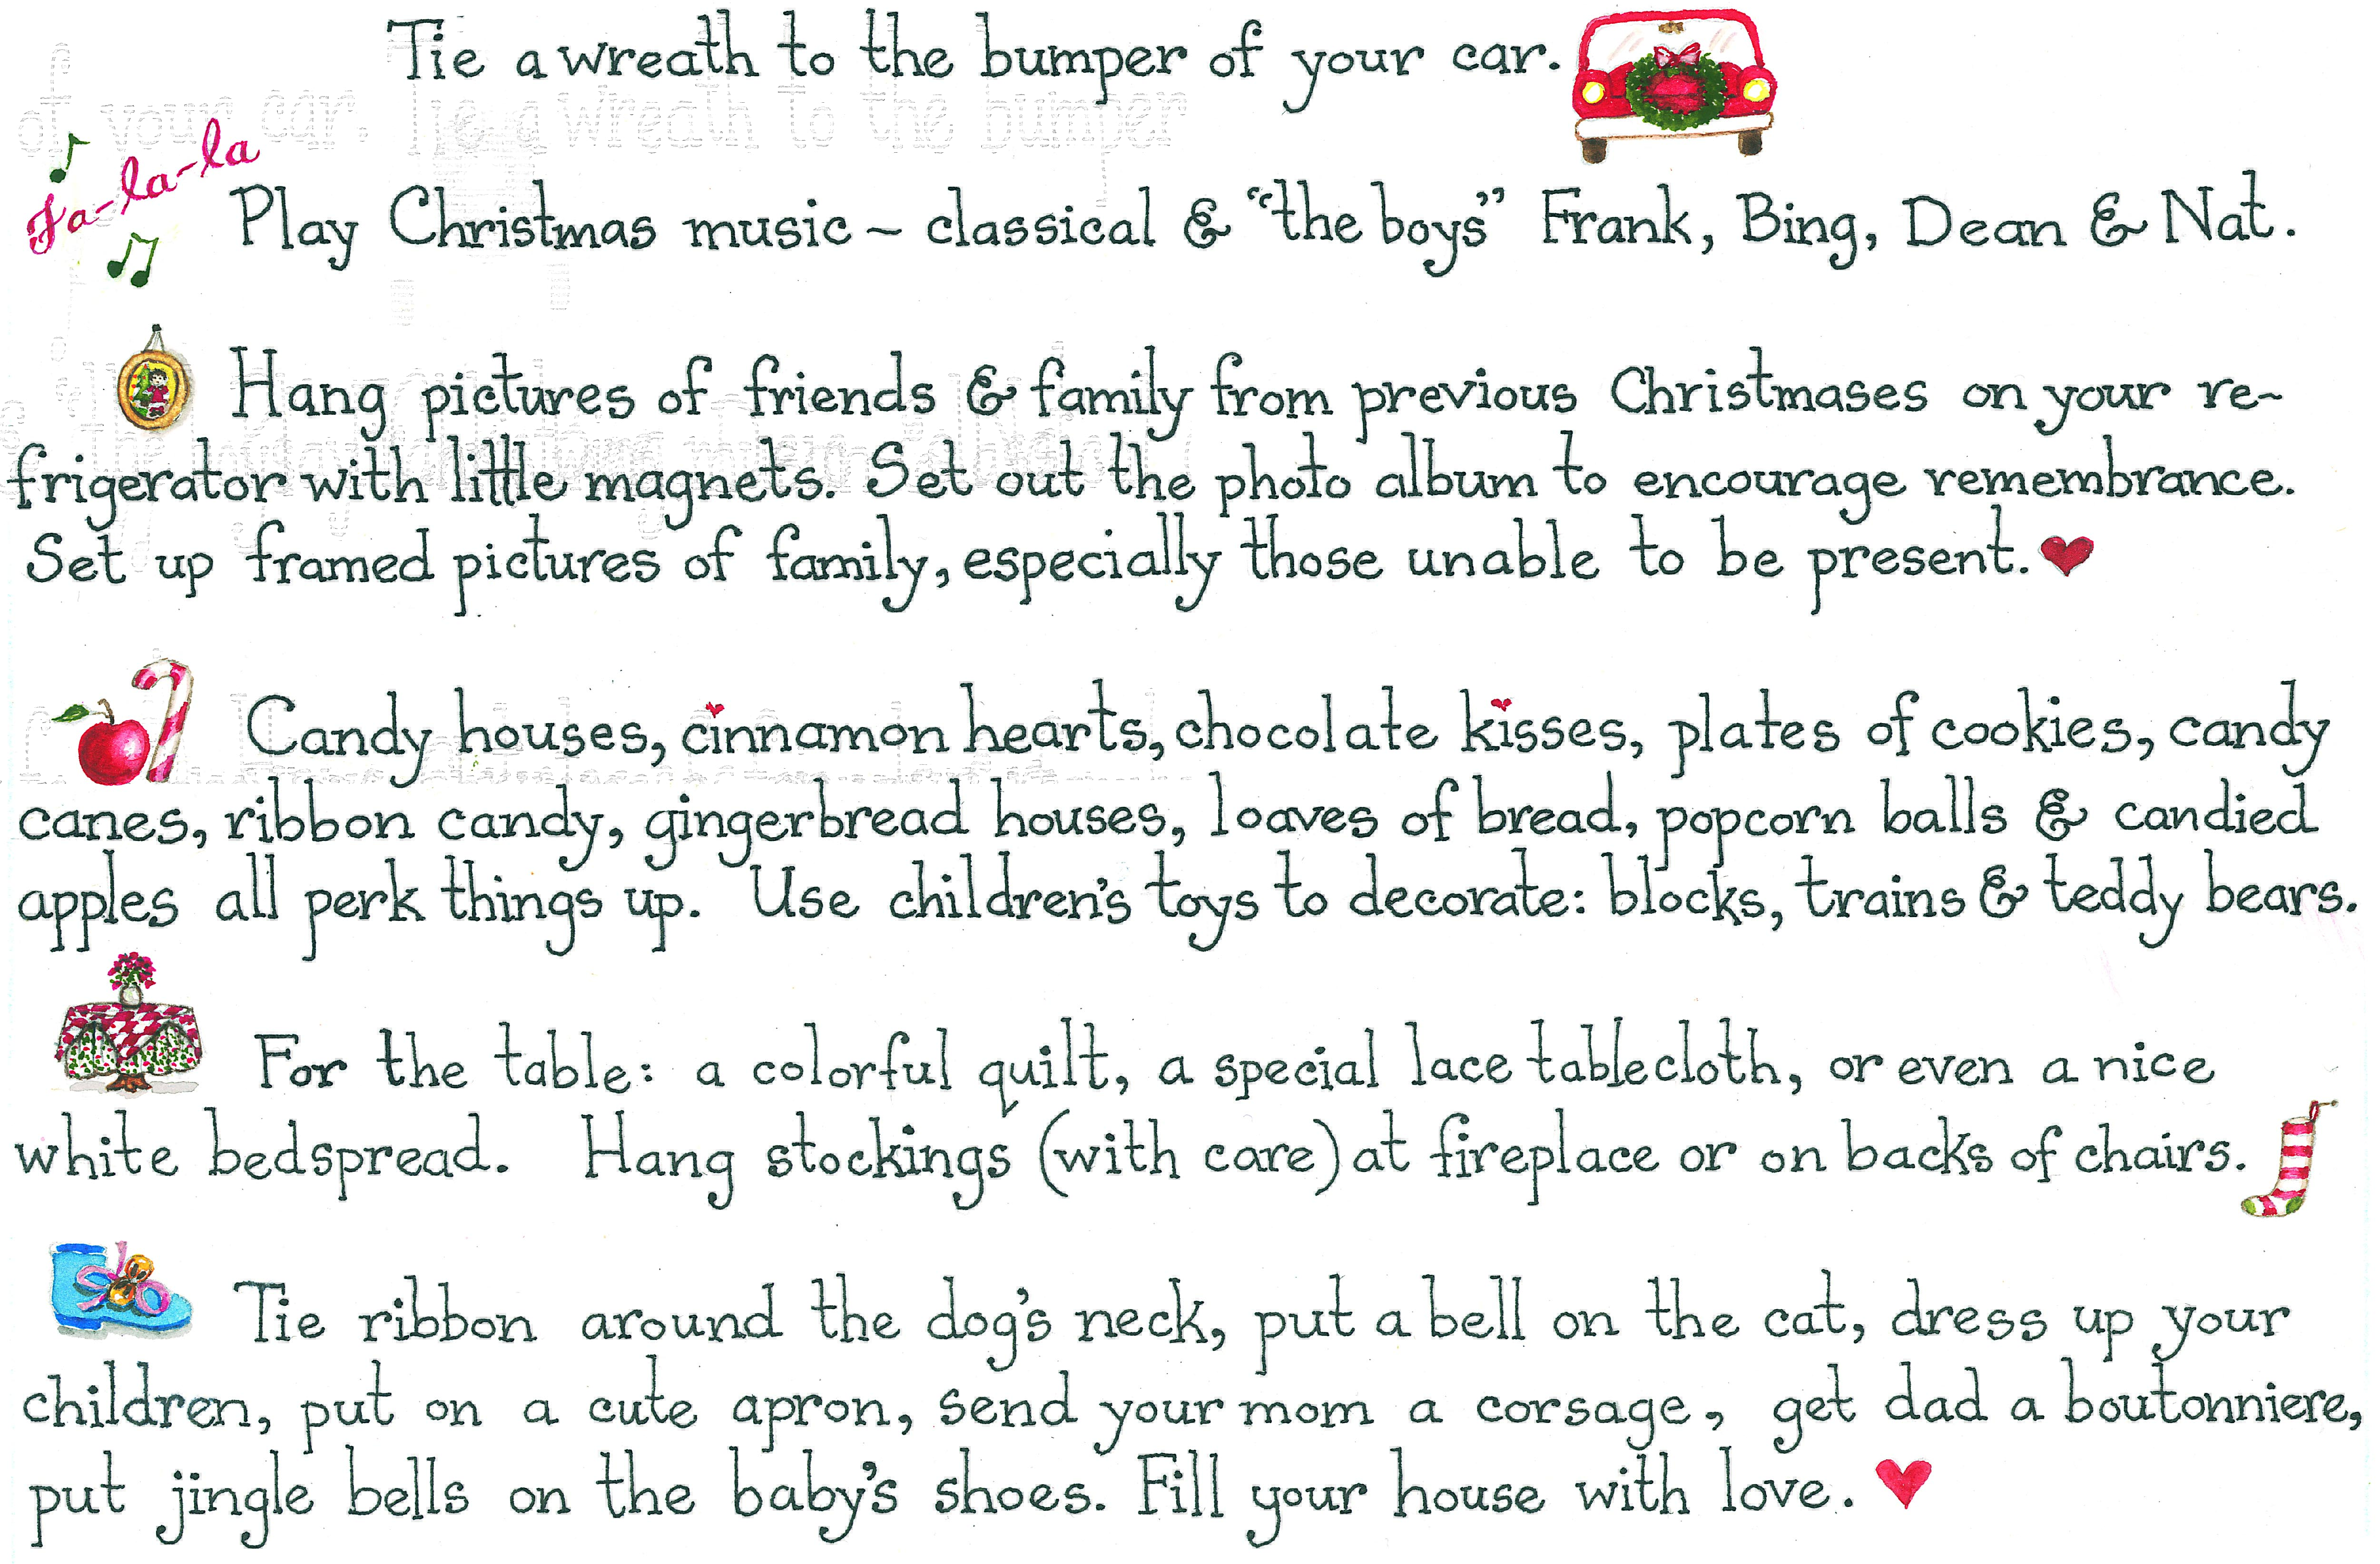 Tie a wreath to the bumper of your car.
Fa-la-la
Play Christmas music ~ classical & "the boys" Frank, Bing, Dean & Nat.
Hang pictures of friends & family from previous Christmases on your re~
frigerator with little magnets. Set out the photo album to encourage remembrance.
Set up framed pictures of family, especially those unable to be present.
Candy houses, cinnamon hearts, chocolate kisses, plates of cookies, candy
canes, ribbon candy, gingerbread houses, loaves of bread, popcorn balls & candied
apples all perk things up. Use children's toys to decorate: blocks, trains & teddy bears.
For the table: a colorful quilt, a special lace tablecloth, or even a nice
white bedspread. Hang stockings (with care) at fireplace or on backs of chairs.
Tie ribbon around the dog's neck, put a bell on the cat, dress up your
children, put on a cute apron, send your mom a corsage, get dad a boutonniere,
put jingle bells on the baby's shoes. Fill your house with love.